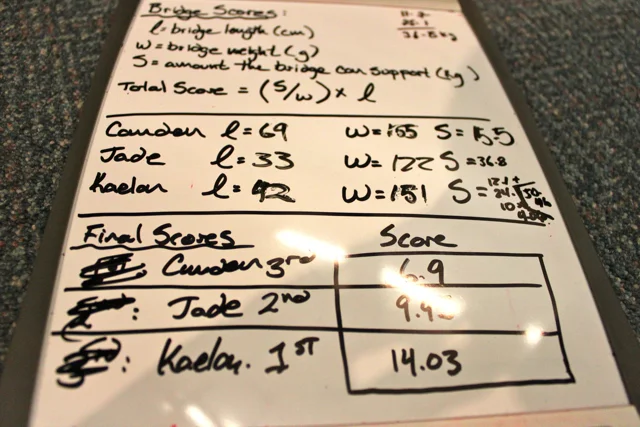 Bridge Scores:
l = bridge length (cm)
w = bridge weight (g)
S = amount the bridge can support (kg)
Total Score = (S/w) × l
36.8 kg
Camden l = 69 w = 155 S = 15.5
Jade l = 33 w = 122 S = 36.8
Kaelan l = 42 w = 151 S =
Final Scores Score
Camden 3rd 6.9
: Jade 2nd 9.9
: Kaelan. 1ST 14.03